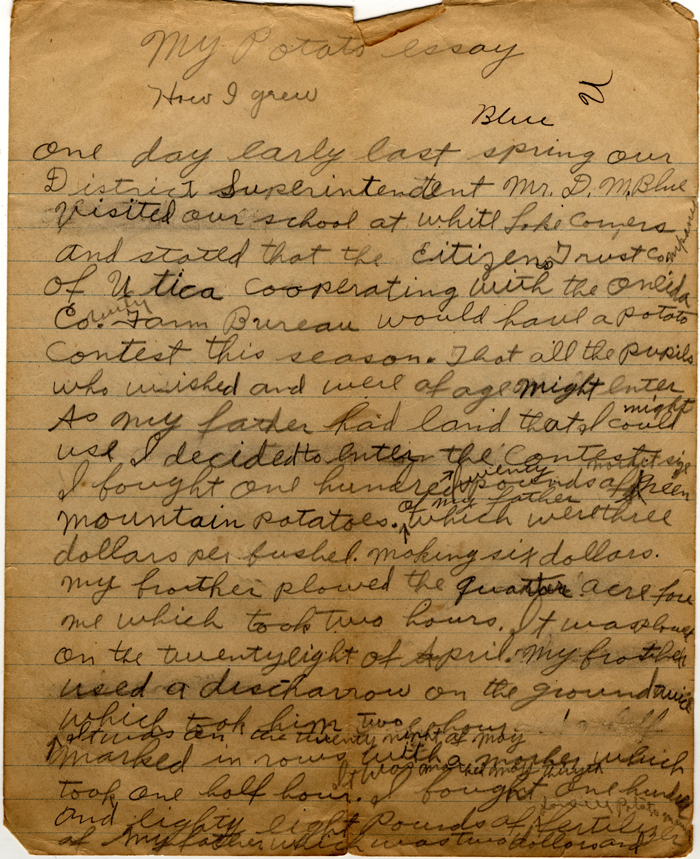 My Potato essay
How I grew
Blue U
one day early last spring our
District Superintendent Mr. D. M. Blue
Visited our school at white Lake Corners
and stated that the Citizens Trust Company
of Utica cooperating with the oneida
County Farm Bureau would have a potato
contest this season. That all the pupils
who wished and were of age might enter
As my father had land that I could might
use I decided to enter the contest
I bought one hundred twenty pounds of market size green
mountain potatoes. of my father which were three
dollars per bushel. making six dollars.
my brother plowed the quarter acre for
me which took two hours. It was plowed
on the twenty eight of April. My brother
used a disc harrow on the ground twice
which took him two hours
It was on the twenty night of May
marked in rows with a marker which
It was marked May thirtyth
took one half hour. I bought one hundred
and eighty eight pounds of fertilizer
of my father which was two dollars and